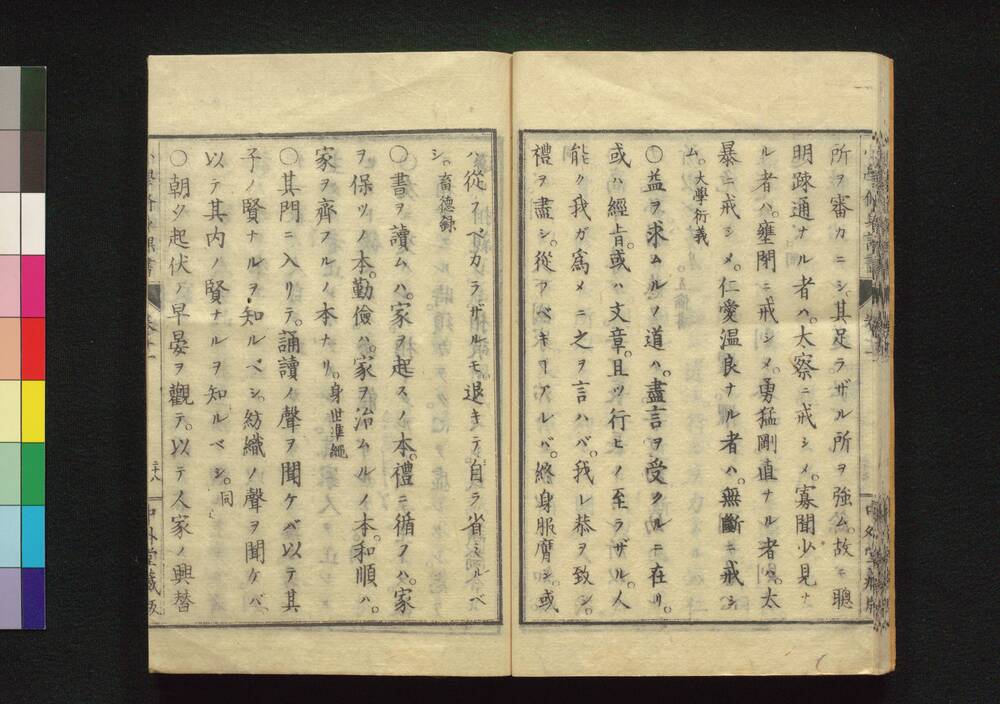 所ヲ審カニシ。其足ラザル所ヲ強ム。故ニ聰
明疎通ナル者ハ。太察ニ戒シメ。寡聞少見ナ
ル者ハ。壅閉ニ戒シメ。勇猛剛直ナル者ハ。太
暴ニ戒シメ。仁愛溫良ナル者ハ。無斷ニ戒シ
ム。大學衍義
〇益ヲ求ムルノ道ハ。盡言ヲ受クルニ在リ。
或ハ經旨。或ハ文章。且ツ行ヒノ至ラザル。人
能ク我ガ爲メニ之ヲ言ハバ。我レ恭ヲ致シ。
禮ヲ盡シ。從フベキヿアレバ。終身服膺シ。或
ハ從フベカラザルモ。退キテ自ラ省ミルベ
シ。畜德錄
〇書ヲ讀ムハ。家ヲ起スノ本。禮ニ循フハ。家
ヲ保ツノ本。勤儉ハ。家ヲ治ムルノ本。和順ハ。
家ヲ齊フルノ本ナリ。身世準繩
〇其門ニ入リテ。誦讀ノ聲ヲ聞ケバ。以テ其
子ノ賢ナルヲ知ルベシ。紡織ノ聲ヲ聞ケバ。
以テ其内ノ賢ナルヲ知ルベシ。同
〇朝夕起伏ノ早晏ヲ觀テ。以テ人家ノ興替
中外堂藏版